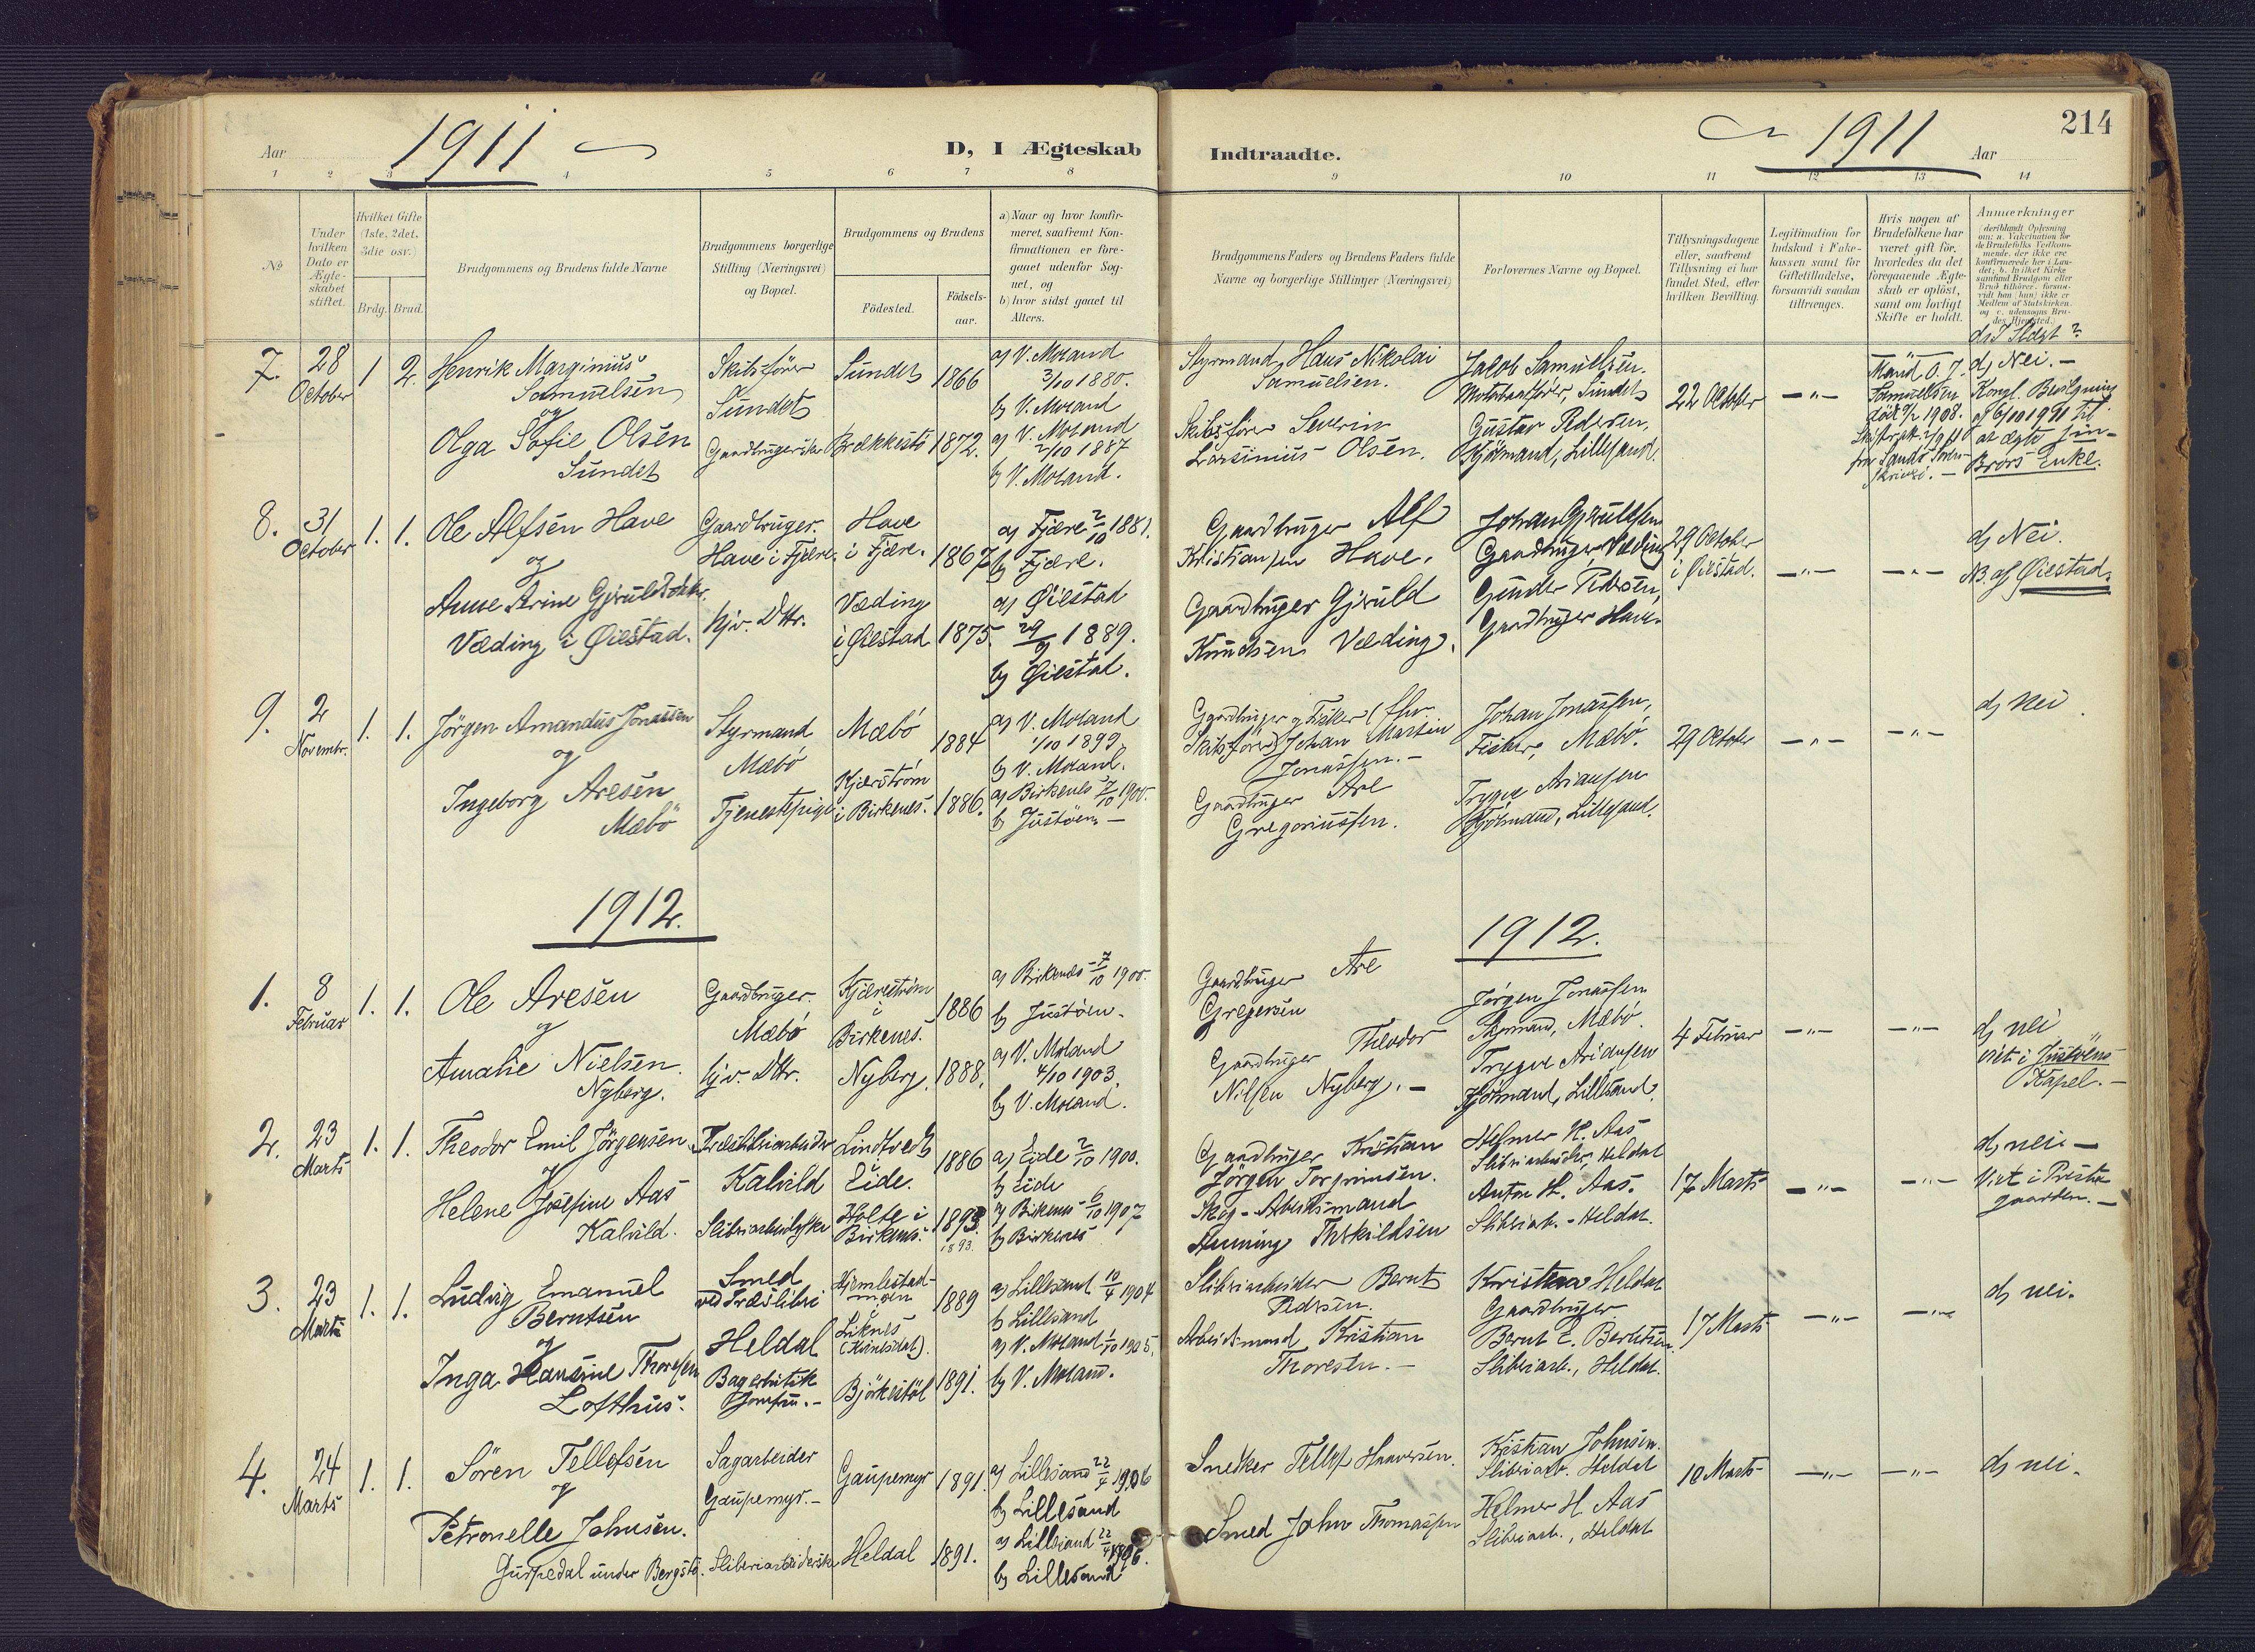 Aar 1911
D, I Ægteskab
Indtraadte.
1911 Aar
214
1 2 3 4 5 6 7 8 9 10 11 12 13 14
No
Under hvilken Dato er Ægteskabet stiftet.
Hvilket Gifte (1ste, 2det, 3die osv.)
Brdg. Brud.
Brudgommens og Brudens fulde Navne
Brudgommens borgerlige Stilling (Næringsvei) og Bopæl.
Brudgommens og Brudens
Födested.
Födsels-aar.
a) Naar og hvor konfirmeret, saafremt Konfirmationen er foregaaet udenfor Sognet, og
b) hvor sidst gaaet til Alters.
Brudgommens Faders og Brudens Faders fulde Navne og borgerlige Stillinger (Næringsvei)
Forlovernes Navne og Bopæl.
Tillysningsdagene eller, saafremt Tillysning ei har fundet Sted, efter hvilken Bevilling.
Legitimation for Indskud i Enkekassen samt for Giftetilladelse, forsaavidt saadan tiltrænges.
Hvis nogen af Brudefolkene har været gift før, hvorledes da det foregaaende Ægteskab er oplöst, samt om lovligt Skifte er holdt.
Anmerkninger
7. 28 October 1 2.
Henrik Marginius
Samuelsen
og
Olga Sofie Olsen
Sundet
Skibsfører
Sundet
Sundet 1866
Brækkestö 1872.
a) V. Moland
3/10 1880.
b) V. Moland
a) V. Moland
2/10 1887
b) V. Moland.
Styrmand Hans Nikolai
Samuelsen.
Skibsfører Severin
Larsinius Olsen.
Jakob Samuelsen.
Motorbaatfører, Sundet
Gustav Pedersen,
Sjømand, Lillesand.
22 October
—"—
Mand O. J.
Samuelsen
død 9/2 1908.
d) Nei. —
Kongl. Bevilgning
af 6/10 1911 til
at ægte sin
Brors Enke.
8. 31 October 1. 1.
Ole Alfsen Have
og
Anne Arine Gjeruldsdtr.
Væding i Øiestad.
Gaardbruger.
Have i Fjære.
hjv. Dttr.
Have
i Fjære. 1867
Væding
i Øiestad 1875.
a) Fjære 2/10 1881.
b) Fjære.
a) Øiestad
29/9 1889.
b) Øiestad.
Gaardbruger Alf
Kristiansen Have.
Gaardbruger Gjeruld
Knudsen Væding.
Johan Gjeruldsen
Gaardbruger, Væding
Gunder Pedersen,
Gaardbruger Have.
29 October
i Øiestad.
—"— —"—
d) Nei.
NB. af Øiestad.
9. 2 Novembr. 1. 1.
Jörgen Amandus Jonassen
og
Ingeborg Aresen
Mæbö
Styrmand
Mæbö
Tjenestepige
Mæbö 1884
Kjærström
i Birkenes. 1886.
a) V. Moland
1/10 1899
b) V. Moland.
a) Birkenes 7/10 1900.
b) Justöen. —
Gaardbruger og Fisker (fhv.
Skibsfører) Johan Martin
Jonassen. —
Gaardbruger Are
Gregoriussen.
Johan Jonassen,
Fisker, Mæbö.
Trygve Ariansen
Sjömand, Lillesand.
29 October
—"— —"—
d) nei
1912.
1912.
1. 8 Februar 1. 1.
Ole Aresen
og
Amalie Nielsen
Nyberg.
Gaardbruger.
Mæbö
hjv. Dttr.
Kjærström
i
Birkenes. 1886
Nyberg. 1888.
a) Birkenes 7/10 1900.
b) Justöen.
a) V. Moland
4/10 1903.
b) V. Moland.
Gaardbruger Are
Gregersen
Gaardbruger Theodor
Nilsen Nyberg. —
Jörgen Jonassen
Styrmand, Mæbö.
Trygve Ariansen
Sjömand, Lillesand.
4 Februar
—"— —"—
d) nei
viet i Justöens
Kapel. —
2. 23 Marts 1. 1.
Theodor Emil Jörgensen
og
Helene Josefine Aas
Kalvild.
Træsliberiarbeider
Kalvild
Lindtveit
i
Eide. 1886
Holte i
Birkenes. 1893.
1893.
a) Eide 2/10 1900.
b) Eide
a) Birkenes 6/10 1907
b) Birkenes
Gaardbruger Kristian
Jörgen Torjeinsen.
Skog-Arbeidsmand
Henning Therkildsen
Helmer H. Aas
Sliberiarbeider, Heldal
Anton H. Aas.
Sliberiarb. - Heldal.
17 Marts
—"— —"—
d) nei —
Viet i Præste-
gaarden. —
3. 23 Marts 1. 1.
Ludvig Emanuel
Berntsen
og
Inga Hansine Thoresen
Lofthus.
Smed
ved Træsliberi
Heldal
1889
Liknes
Björkestöl 1891.
a) Lillesand 10/4 1904
b) Lillesand
a) V. Moland 1/10 1905.
b) V. Moland.
Sliberiarbeider Bernt
Pedersen.
Arbeidsmand Kristian
Thoresen. —
Kristian Heldal
Gaardbruger
Bernt E. Berntsen.
Sliberiarb., Heldal.
17 Marts
—"— —"—
d) nei.
4. 24 Marts 1. 1.
Sören Tellefsen
og
Petronelle Johnsen.
Gurpedal under Bergstö.
Sagarbeider
Gaupemyr. —
Sliberiarbeiderske
Gaupemyr 1891.
Heldal 1891.
a) Lillesand 22/4 1906
b) Lillesand
a) Lillesand 22/4 1906.
b) Lillesand
Snedker Tellef Haaversen.
Smed John Thomassen
Kristian Johnsen.
Sliberiarb. Heldal
Helmer H. Aas
Sliberiarb., Heldal
18 Marts
—"— —"—
d) nei.